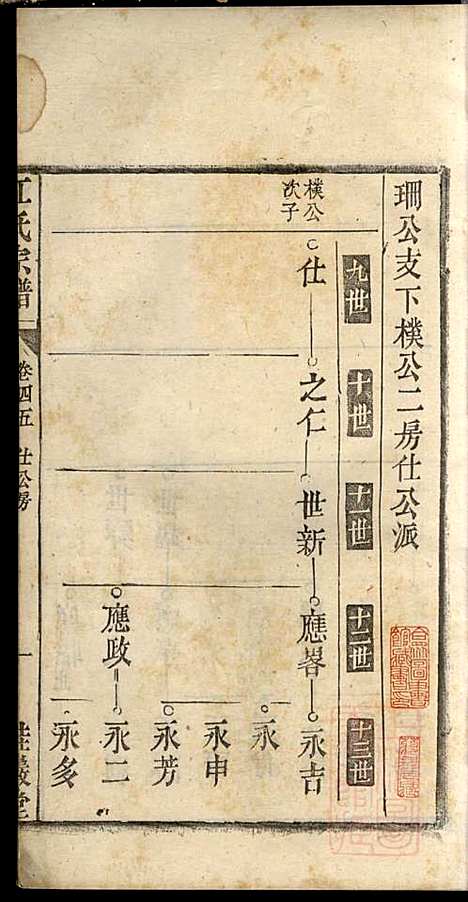 珊公支下樸公二房仕公派
九世
十世
十一世
十二世
十三世
樸公
次子
仕
之仁
世新
應畧
永吉
永
永申
永芳
應政
永二
永多
江氏宗譜
卷四五
仕公房
一